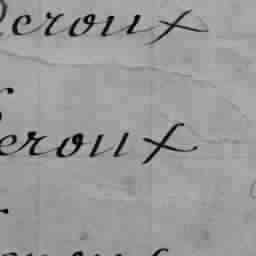 Leroux
Leroux